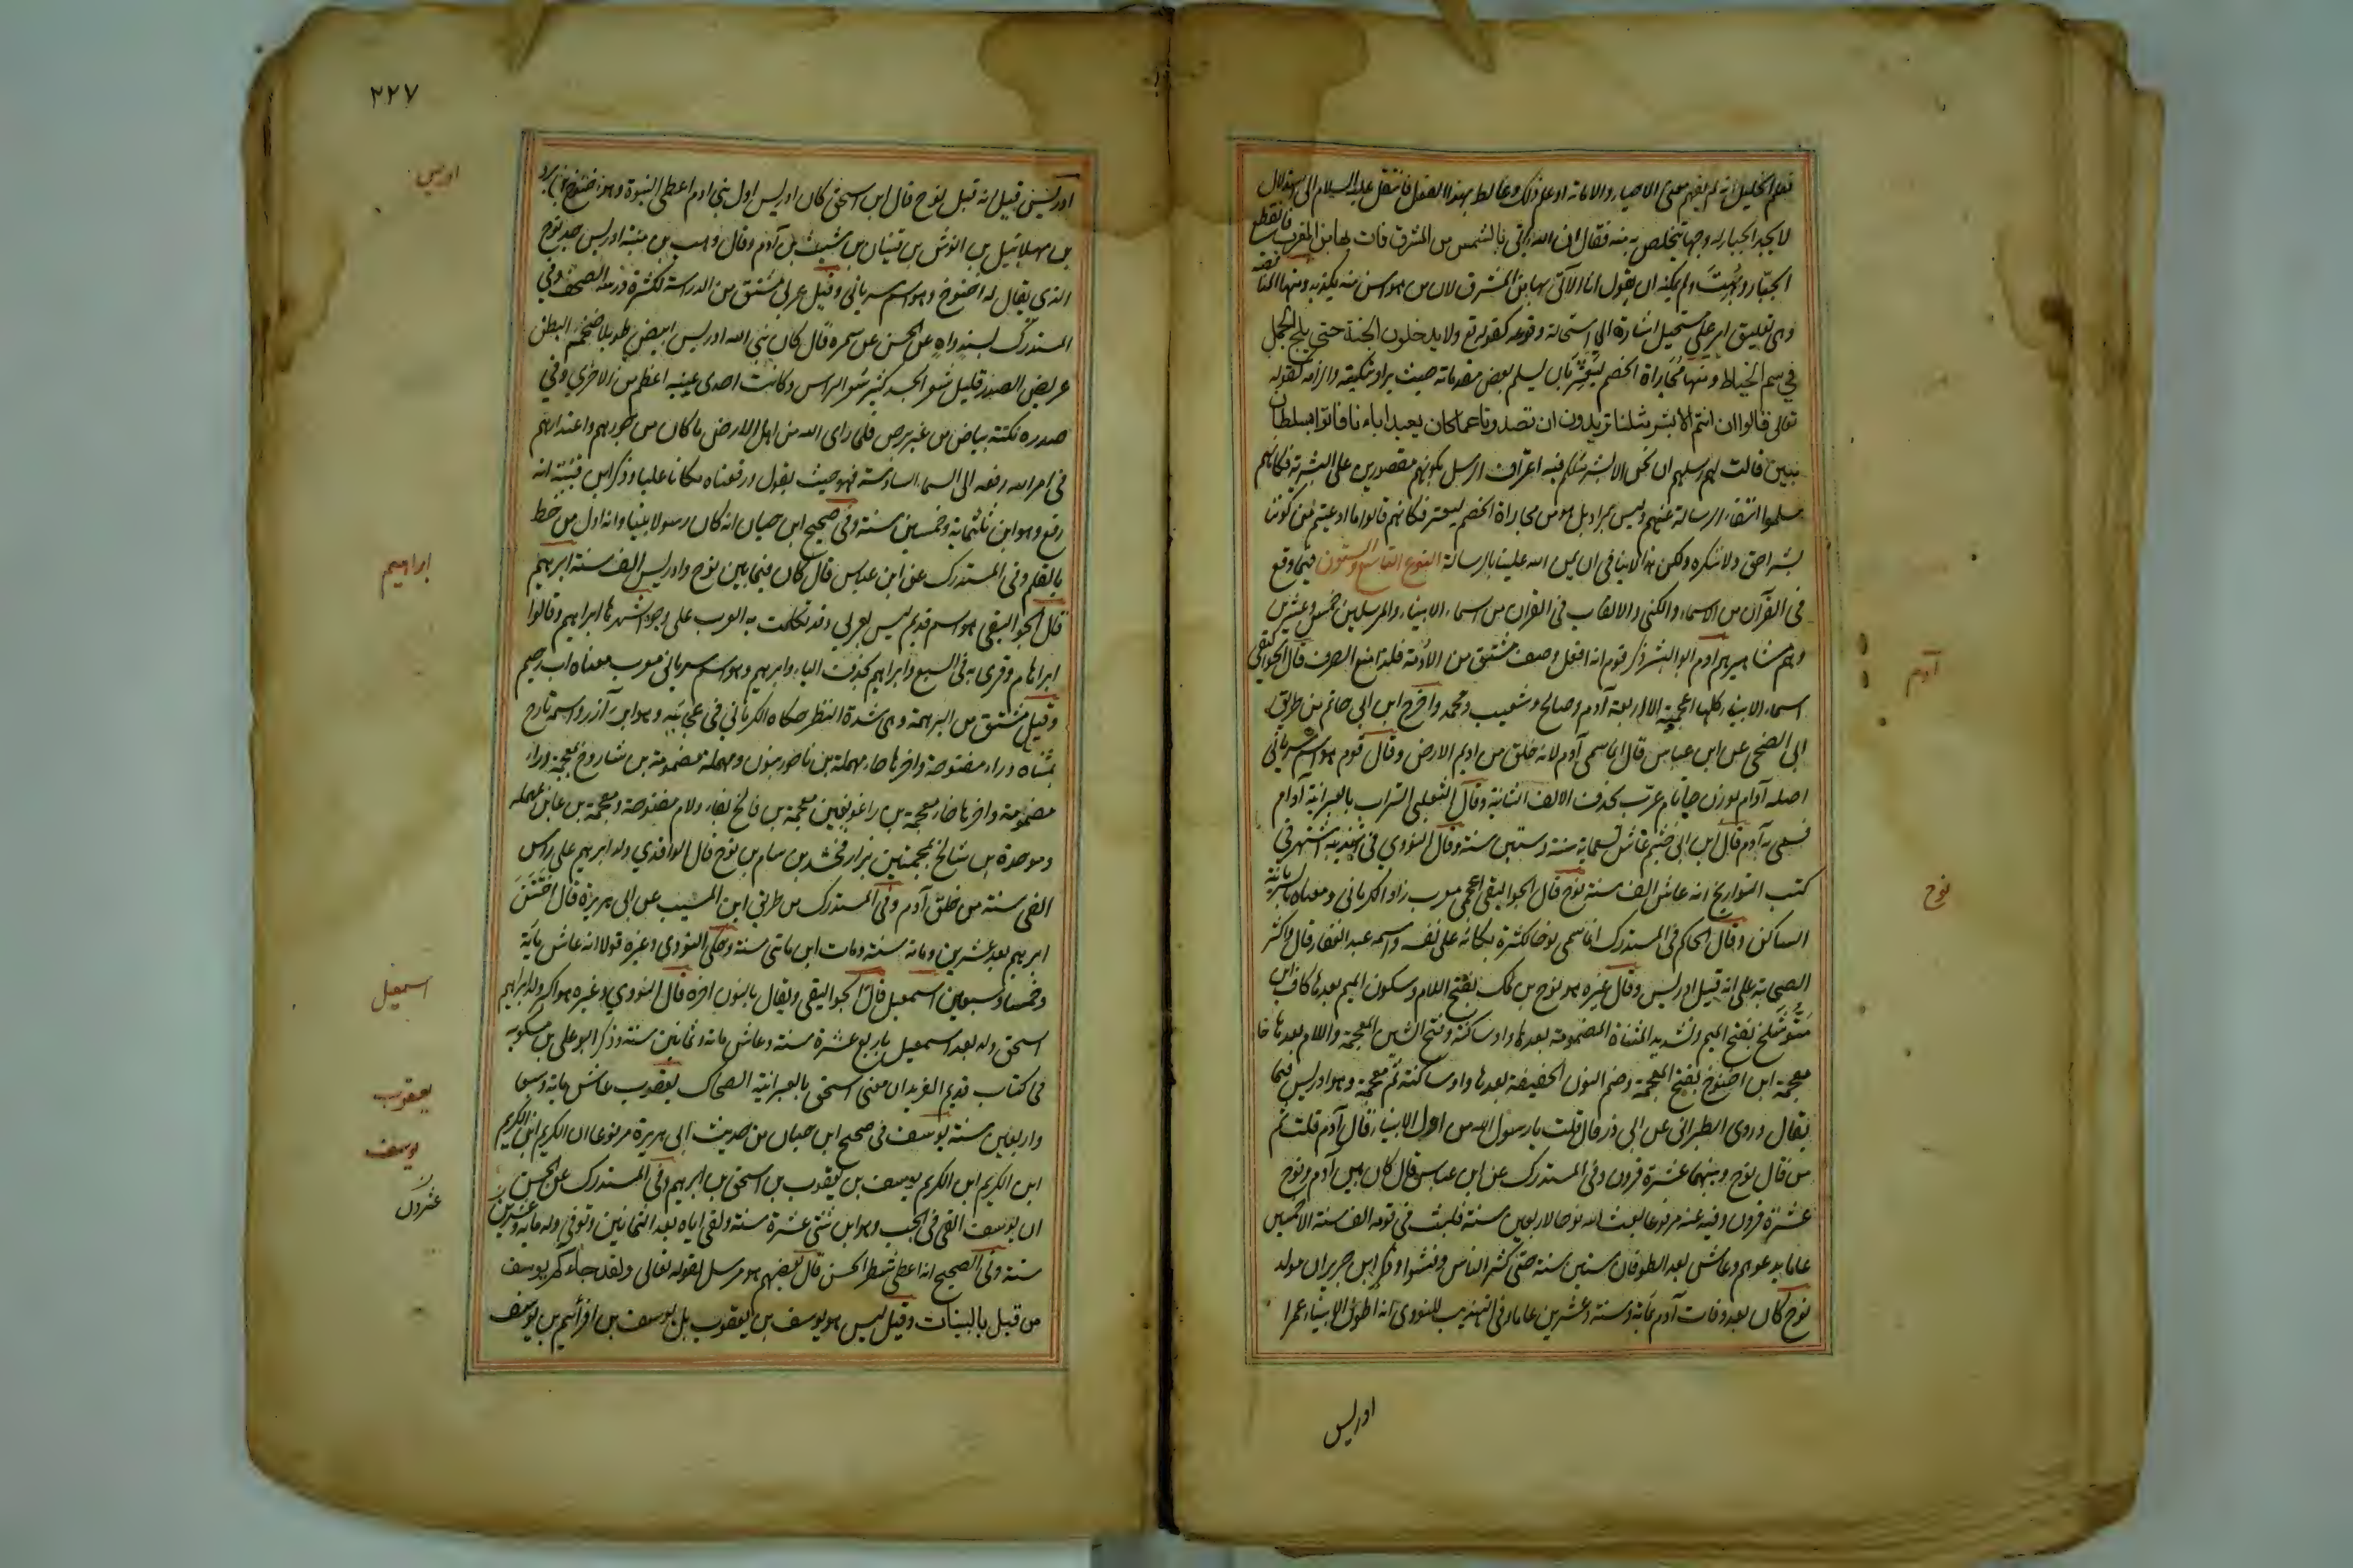 فعلم الخليل انه لم يفهم معنى الاحياء والاماتة او علم ذلك وغالط بهذا الفعل فانتقل عليه السلام الى استدلال
لا يجد الجبار له وجها يتخلص به منه فقال ان الله ياتي بالشمس من المشرق فات بها من المغرب فانقطع
الجبار وبهت ولم يمكنه ان يقول انا الآتي بها من المشرق لان من هو اسن منه يكذبه ومنها المناقضة
وهى تعليق امر على مستحيل اشارة الى استحالة وقوعه كقوله تع ولا يدخلون الجنة حتى يلج الجمل
في سم الخياط ومنها مجاراة الخصم ليعثر بان يسلم بعض مقدماته حيث يراد تبكيته والزامه كقوله
تعالى قالوا ان انتم الا بشر مثلنا تريدون ان تصدونا عما كان يعبد اباءنا فاتوا بسلطان
مبين قالت لهم رسلهم ان نحن الا بشر مثلكم فيه اعتراف الرسل بكونهم مقصورين على البشرية فكانهم
سلموا انتفاء الرسالة عنهم وليس مرادا بل هو من مجاراة الخصم ليعثر فكانهم قالوا ما ادعيتم من كوننا
بشرا حق ولا ننكره ولكن هذا لا ينافى ان يمن الله علينا بالرسالة النوع التاسع والستون فيما وقع
فى القرآن من الاسماء والكنى والالقاب فى القران من اسماء الانبياء والمرسلين خمس وعشرين
وهم مشاهيرهم ادم ابو البشر ذكر قوم انه افعل وصف مشتق من الادمة فلذا منع الصرف قال الجواليقى
اسماء الانبياء كلها اعجمية الا اربعة آدم وصالح وشعيب ومحمد واخرج ابن ابى حاتم من طريق
ابى الضحى عن ابن عباس قال انما سمى آدم لانه خلق من اديم الارض وقال قوم هو اسم سريانى
اصله آدام بوزن خاتام عرب بحذف الالف الثانية وقال الثعلبى التراب بالعبرانية آدام
فسمى به آدم قال ابن ابى خثيمة عاش تسعماية سنة وستين سنة وقال النووي فى تهذيبه اشتهر فى
كتب التواريخ انه عاش الف سنة نوح قال الجواليقى اعجمى معرب زاد الكرمانى ومعناه بالسريانية
الساكن وقال الحاكم فى المستدرك انما سمى نوحا لكثرة بكائه على نفسه واسمه عبد الغفار قال واكثر
الصحابة على انه قبل ادريس وقال غيره هو نوح بن لمك بفتح اللام وسكون الميم بعدها كاف ابن
متوشلخ بفتح الميم وتشديد المثناة المضمومة بعدها واو ساكنة وفتح الشين المعجمة واللام بعدها خا
معجمة ابن اخنوخ بفتح المعجمة وضم النون الخفيفة بعدها واو ساكنة ثم معجمة وهو ادريس فيما
يقال وروى الطبرانى عن ابى ذر قال قلت يا رسول الله من اول الانبياء قال آدم قلت ثم
من قال نوح وبينهما عشرة قرون وفى المستدرك عن ابن عباس قال كان بين آدم ونوح
عشرة قرون وفيه عنه مرفوعا بعث الله نوحا لاربعين سنة فلبث فى قومه الف سنة الا خمسين
عاما يدعوهم وعاش بعد الطوفان ستين سنة حتى كثر الناس وفشوا وذكر ابن جرير ان مولد
نوح كان بعد وفات آدم بمائة وستة وعشرين عاما وفى التهذيب للنووى انه اطول الانبياء عمرا
ادريس
آدم
نوح
٢٢٧
ادريس قيل انه قبل نوح قال ابن اسحق كان ادريس اول بنى ادم اعطى النبوة وهو اخنوخ بن يرد
بن مهلائيل بن انوش بن قينان بن شيث بن آدم وقال وهب بن منبه ادريس جد نوح
الذى يقال له اخنوخ وهو اسم سريانى وقيل عربى مشتق من الدراسة لكثرة درسه الصحف وفي
المستدرك بسند واه عن الحسن عن سمرة قال كان نبى الله ادريس ابيض طويلا ضخم البطن
عريض الصدر قليل شعر الجسد كثير شعر الراس وكانت احدى عينيه اعظم من الاخرى وفي
صدره نكتة بياض من غير برص فلما راى الله من اهل الارض ما كان من جورهم واعتدائهم
فى امر الله رفعه الى السماء السادسة فهو حيث يقول ورفعناه مكانا عليا وذكر ابن قتيبة انه
رفع وهو ابن ثلثماية وخمسين سنة وفى صحيح ابن حبان انه كان رسولا نبيا وانه اول من خط
بالقلم وفى المستدرك عن ابن عباس قال كان فيما بين نوح وادريس الف سنة ابرهيم
قال الجواليقى هو اسم قديم ليس بعربى وقد تكلمت به العرب على وجوه اشهرها ابراهيم وقالوا
ابراهام وقرى به فى السبع وابراهيم بحذف الياء وابرهيم وهو اسم سريانى معرب معناه اب رحيم
وقيل مشتق من البرهمة وهى شدة النظر حكاه الكرمانى فى عجائبه وهو ابن آزر واسمه تارح
بمثناه وراء مفتوحة واخرها حاء مهملة بن ناحور بنون ومهملة مضمومة بن شاروخ بمعجمة وراء
مضمومة واخرها خاء معجمة بن راغو بغين معجمة بن فالخ بفاء ولام مفتوحة ومعجمة بن عابر بمهملة
وموحدة بن شالخ بمعجمتين بن ارفخشد بن سام بن نوح قال الواقدي ولد ابرهيم على راس
الفى سنة من خلق آدم وفى المستدرك من طريق ابن المسيب عن ابى هريرة قال اختتن
ابرهيم بعد عشرين ومائة سنة ومات ابن مائتى سنة وحكى النووى وغيره قولا انه عاش مائة
وخمسا وسبعين اسمعيل قال الجواليقى ويقال بالنون اخره قال النووي وغيره هو اكبر ولد ابراهيم
اسحق ولد بعد اسمعيل باربع عشرة سنة وعاش مائة وثمانين سنة وذكر ابو على بن مسكويه
فى كتاب قديم الفريد ان معنى اسحق بالعبرانية الضحاك يعقوب عاش ماية وسبعا
واربعين سنة يوسف فى صحيح ابن حبان من حديث ابى هريرة مرفوعا ان الكريم ابن الكريم
ابن الكريم ابن الكريم يوسف بن يعقوب بن اسحق بن ابرهيم وفى المستدرك عن الحسن
ان يوسف القى فى الجب وهو ابن ثنتى عشرة سنة ولقى اباه بعد الثمانين وتوفى وله مايه وعشرين
سنة وفى الصحيح انه اعطى شطر الحسن قال بعضهم هو مرسل لقوله تعالى ولقد جاءكم يوسف
من قبل بالبينات وقيل ليس هو يوسف بن يعقوب بل يوسف بن افرائيم بن يوسف
ادريس
ابراهيم
اسمعيل
يعقوب
يوسف
عشرون